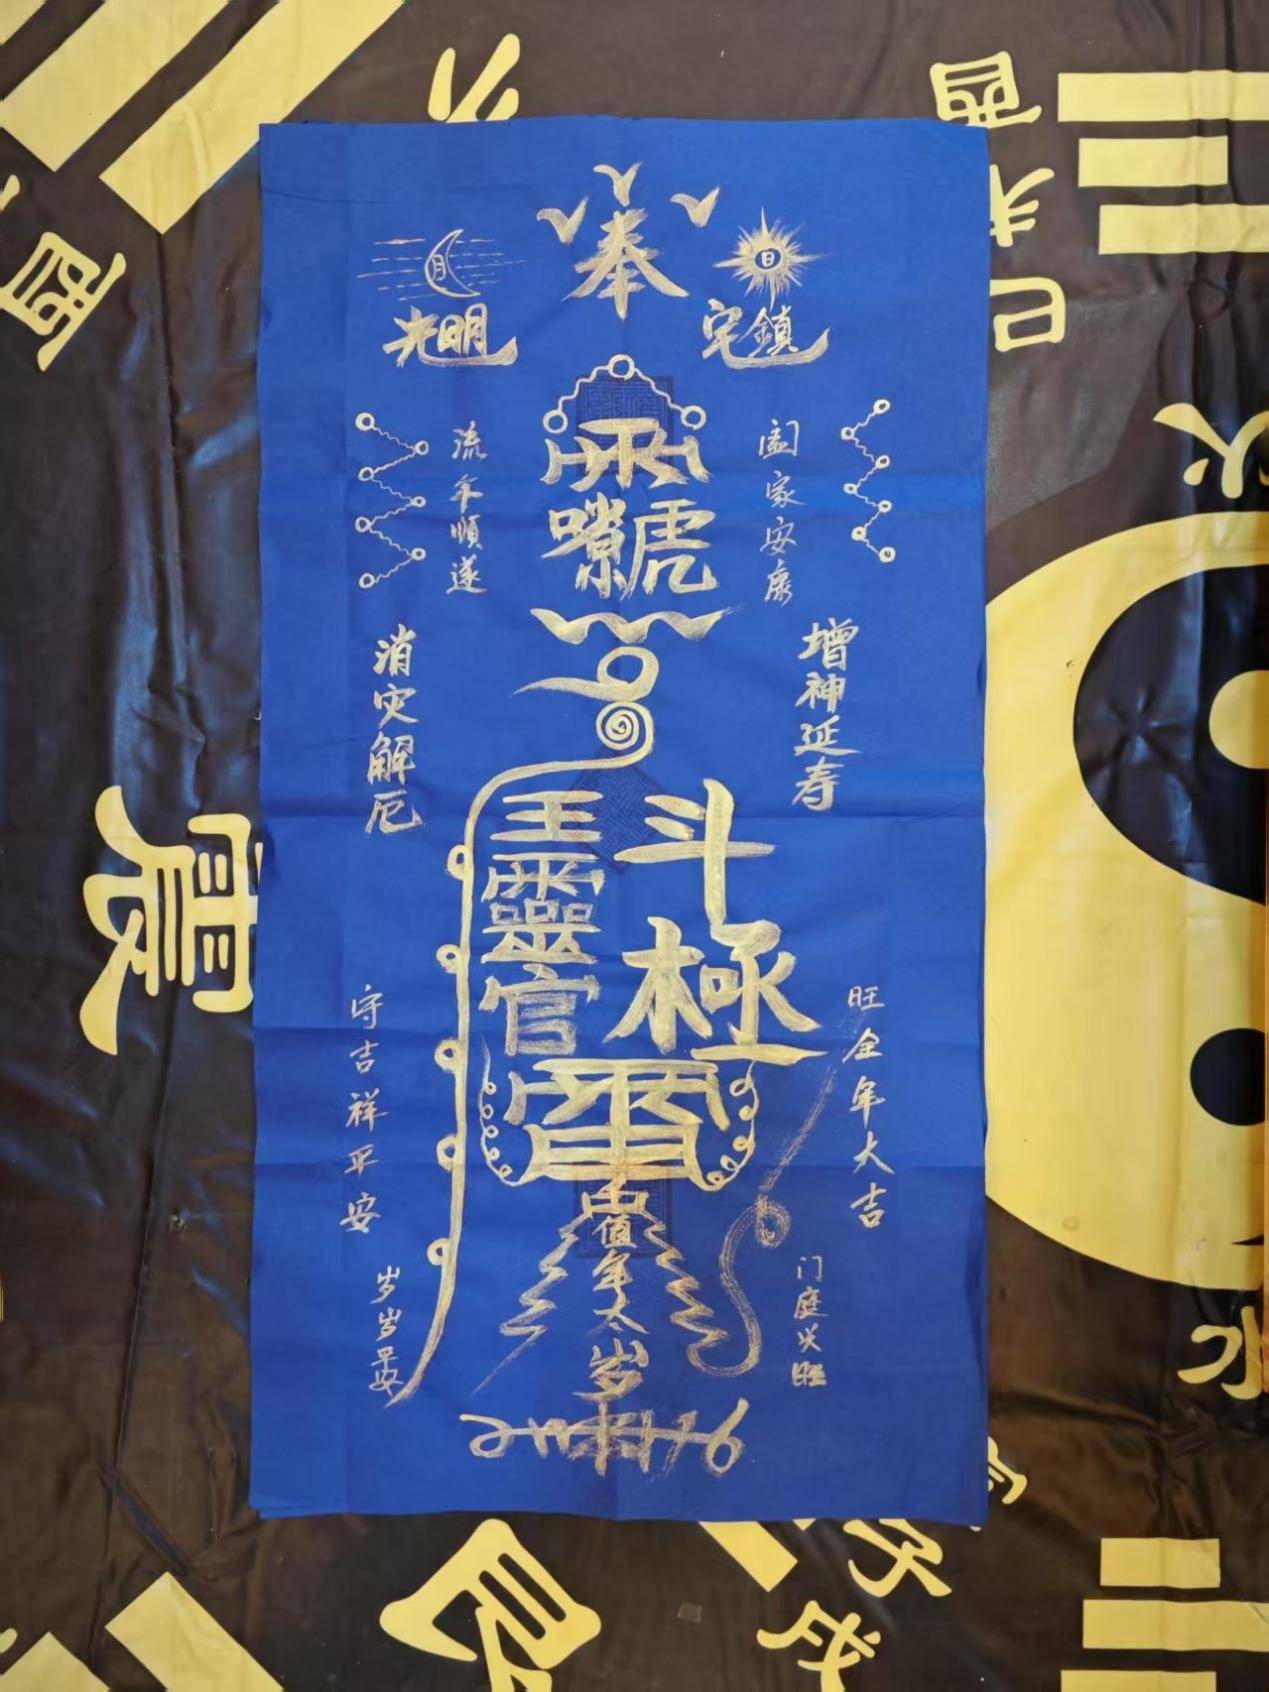 奉
月
日
光明
鎮宅
流年順遂
闔家安康
虎
消灾解厄
增神延寿
王靈官
斗極
守吉祥平安
旺全年大吉
值年太岁
岁岁平安
门庭兴旺
酉
酉
未
巳
震
火
水
艮
子
戌